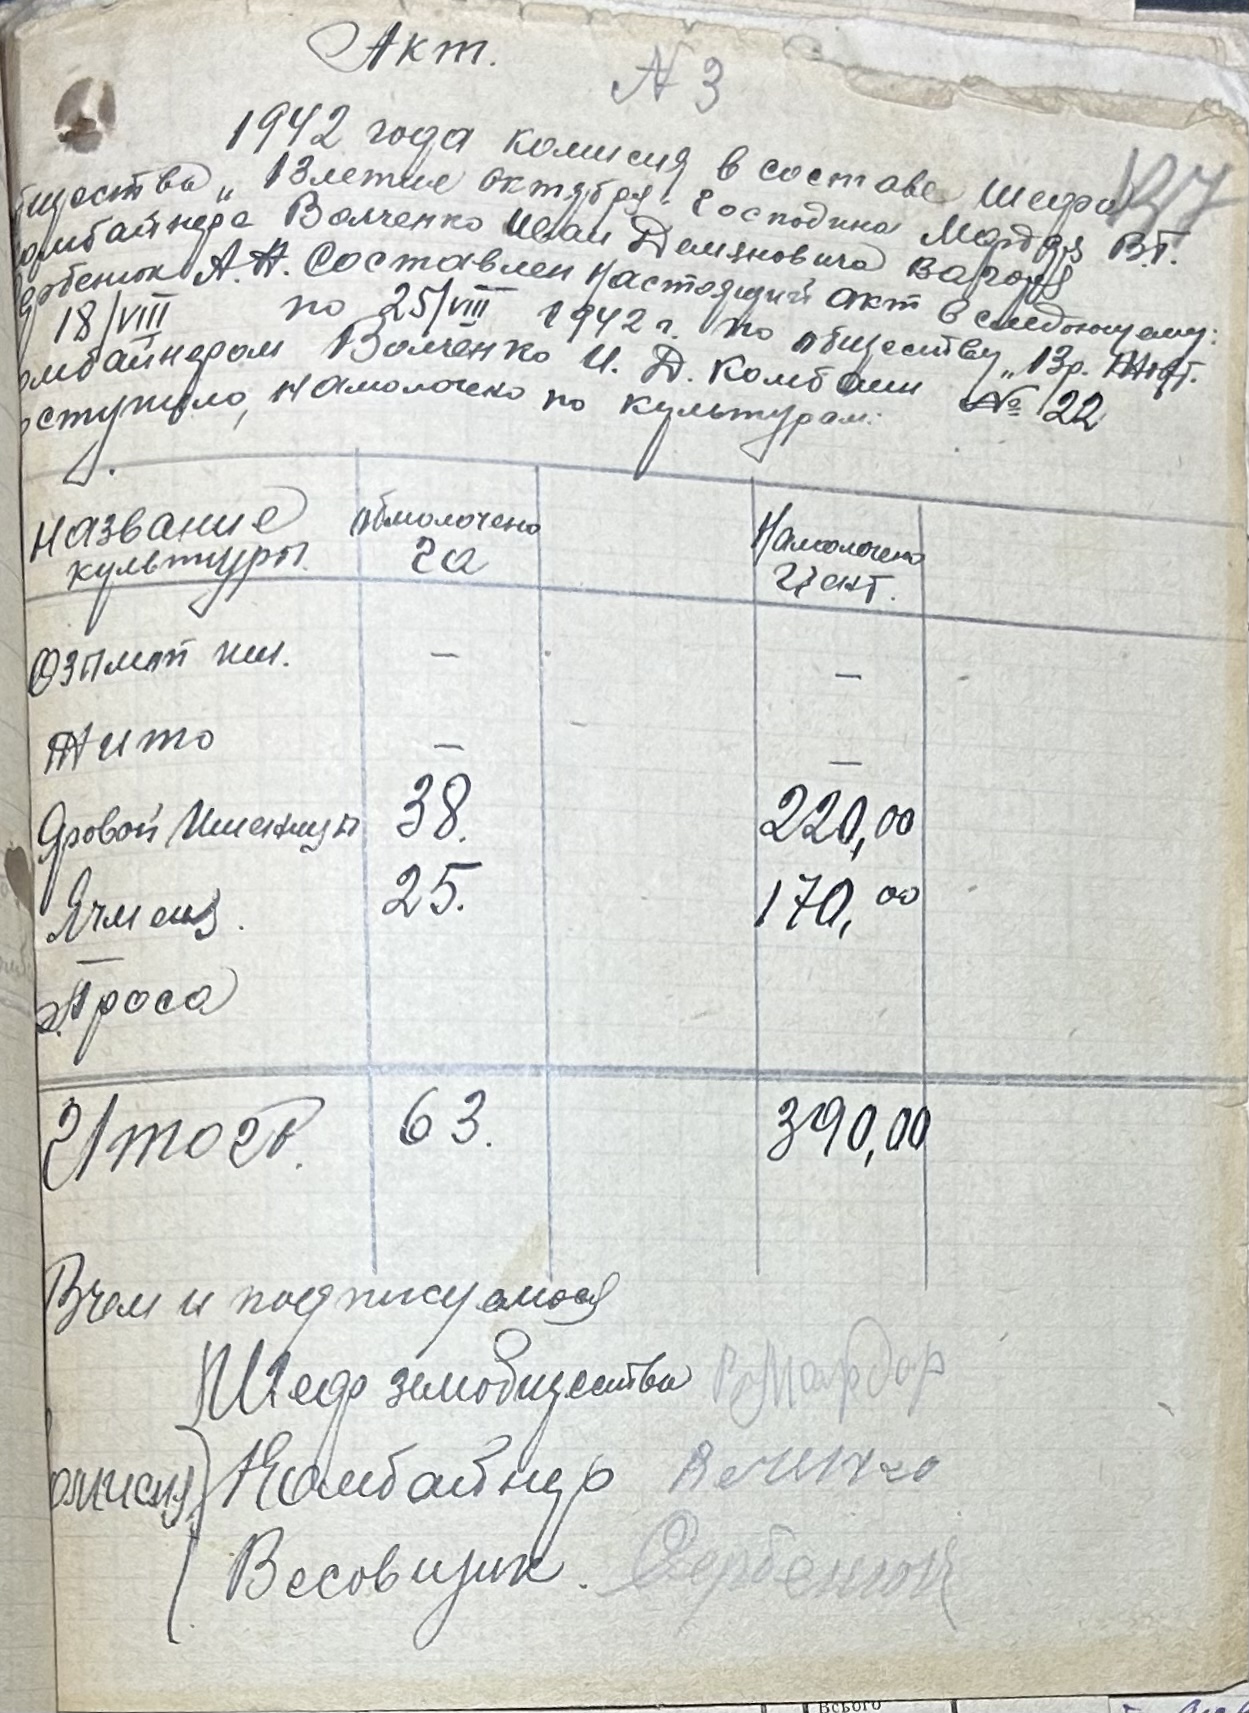 Акт.
N 3
127
1942 года комисия в составе Шефа
бщества „13летие октября" Господина В.Г.
омбайнера Волченко Иван Демяновича
ербенюк А.Н. Составлен настоящий акт в следующему:
18/VIII по 25/VIII 1942 г. по обществу „13р.
омбайнером Волченко И. Д. Комбаин № 22
оступило, намолочено по культурам:
Название культуры
обмолочено га
Намолочено Цент.
Озимой пш. — —
Жито — —
Яровой Пшеницы 38. 220,00
Ячменя. 25. 170,00
Проса
Итого. 63. 390,00
Вчем и подписуемося
Шеф земобщества В Мардар
омисия Комбайнер
Весовщик. Сербенюк
Всього